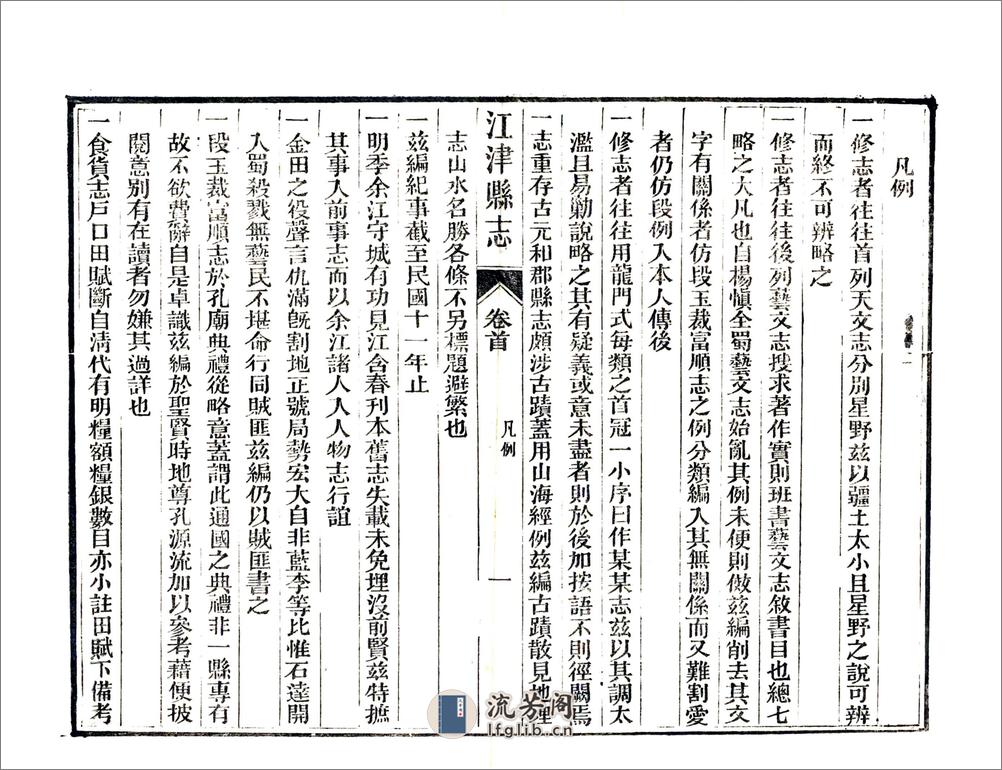 凡例
一修志者往往首列天文志分別星野茲以疆土太小且星野之說可辨
而終不可辨略之
一修志者往往後列藝文志搜求著作實則班書藝文志敘書目也總七
略之大凡也自楊慎全蜀藝文志始亂其例未便則傚茲編削去其文
字有關係者仿段玉裁富順志之例分類編入其無關係而又難割愛
者仍仿段例入本人傳後
一修志者往往用龍門式每類之首冠一小序曰作某某志茲以其調太
濫且易勦說略之其有疑義或意未盡者則於後加按語不則徑闕焉
一志重存古元和郡縣志頗涉古蹟蓋用山海經例茲編古蹟散見地理
江津縣志 卷首 凡例 一
志山水名勝各條不另標題避繁也
一茲編紀事截至民國十一年止
一明季余江守城有功見江含春刊本舊志失載未免埋沒前賢茲特摭
其事入前事志而以余江諸人入人物志行誼
一金田之役聲言仇滿旣割地正號局勢宏大自非藍李等比惟石達開
入蜀殺戮無藝民不堪命行同賊匪茲編仍以賊匪書之
一段玉裁富順志於孔廟典禮從略意蓋謂此通國之典禮非一縣專有
故不欲費辭自是卓識茲編於聖賢時地尊孔源流加以參考藉便披
閱意別有在讀者勿嫌其過詳也
一食貨志戶口田賦斷自清代有明糧額糧銀數目亦小註田賦下備考
流芳閣
lfglib.cn